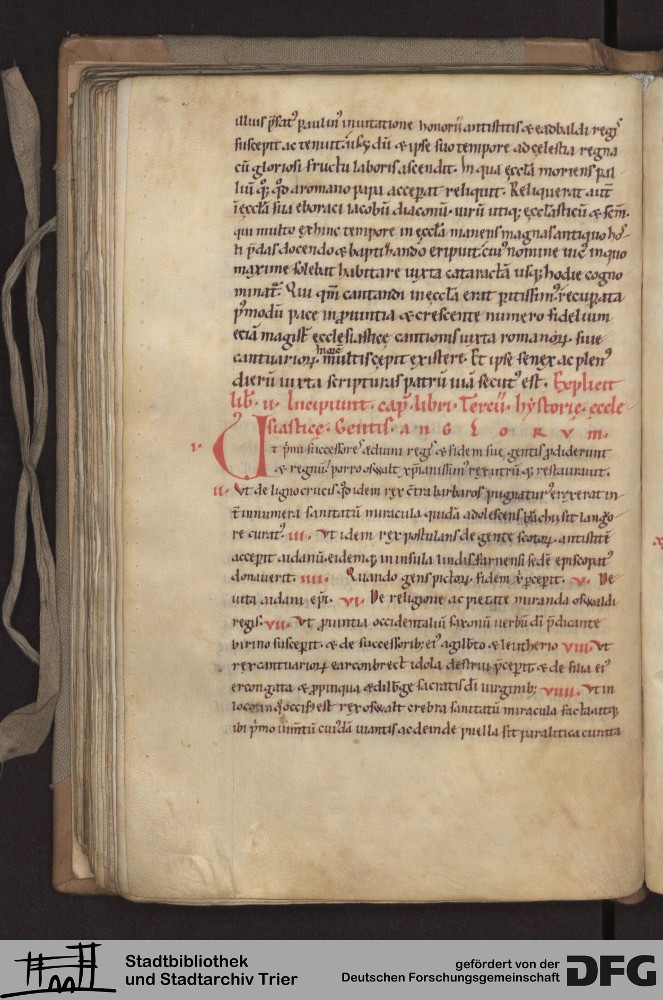 illius p̄fat᷒ paulin᷒ inuitatione honorij antistitis & eadbaldi reg᷒
suscepit ac tenuit. usq; dū & ipse suo tempore ad celestia regna
cū gloriosi fructu laboris ascendit. In qua ęccl̄a moriens pal
liū q;̄ qd̄ a romano papa acceperat reliquit. Reliquerat aut̄
ī ęccl̄a sua eboraci iacobū diaconū. uirū utiq; ęccl̄asticū & sc̄m.
qui multo exhinc tempore in ęccl̄a manens magnas antiquo hos
ti p̄das docendo & baptizando eripuit. cui᷒ nomine uic᷒ in quo
maxime solebat habitare iuxta cataractā usq; hodie cogno
minat᷒. Qui qm̄ cantandi in ęccl̄a erat peritissim᷒ recuperata
p᷒modū pace in prouintia & crescente numero fidelium
eciā magist̄ ecclesiastice cantionis iuxta romanoꝝ siue
cantuarioꝝ more multis cępit existere. Et ipse senex ac plen᷒
dierū iuxta scripturas patrū uiā secut᷒ est. Explicit
lib̄. ii. Incipiunt. cap̄. libri. Tercii. hystorię. eccle
siasticę. Gentis. ANGLORVM.
i. Ut p̄mi successores ęduini regis & fidem suę gentis prodiderunt
& regnū. porro oswalt xp̄ianissim᷒ rex utrūq; restaurauit.
ii. Vt de ligno crucis. qd̄ idem rex c̄tra barbaros pugnatur᷒ erexerat in
t̄ innumera sanitatū miracula quidā adolescens brachii sit lango
re curat᷒. iii. Vt idem rex postulans de gente scotoꝝ antistitē
acceperit aidanū. eidemq; in insula lindisfarnensi sedē episcopat᷒
donauerit. iiii. Quando gens pictoꝝ fidem x̄p̄i perceperit. v. De
uita aidani ep̄i. vi. De religione ac pietate miranda oswaldi
regis. vii. Vt prouintia occidentaliū saxonū uerbū dī p̄dicante
birino susceperit. & de successorib; ei᷒ agilb̄to & leutherio viii. Vt
rex cantuarioꝝ earconbrect idola destrui p̄ceperit & de filia ei᷒
ercongata & propinqua ędilb̄ge sacratis dī uirginib; viiii. Vt in
loco in quo occis᷒ est rex oswalt crebra sanitatū miracula facta. atq;
ibi p̄mo iumtū cui᷒dā uiantis ac deinde puella sit paralitica curata
Stadtbibliothek
und Stadtarchiv Trier
gefördert von der
Deutschen Forschungsgemeinschaft
DFG